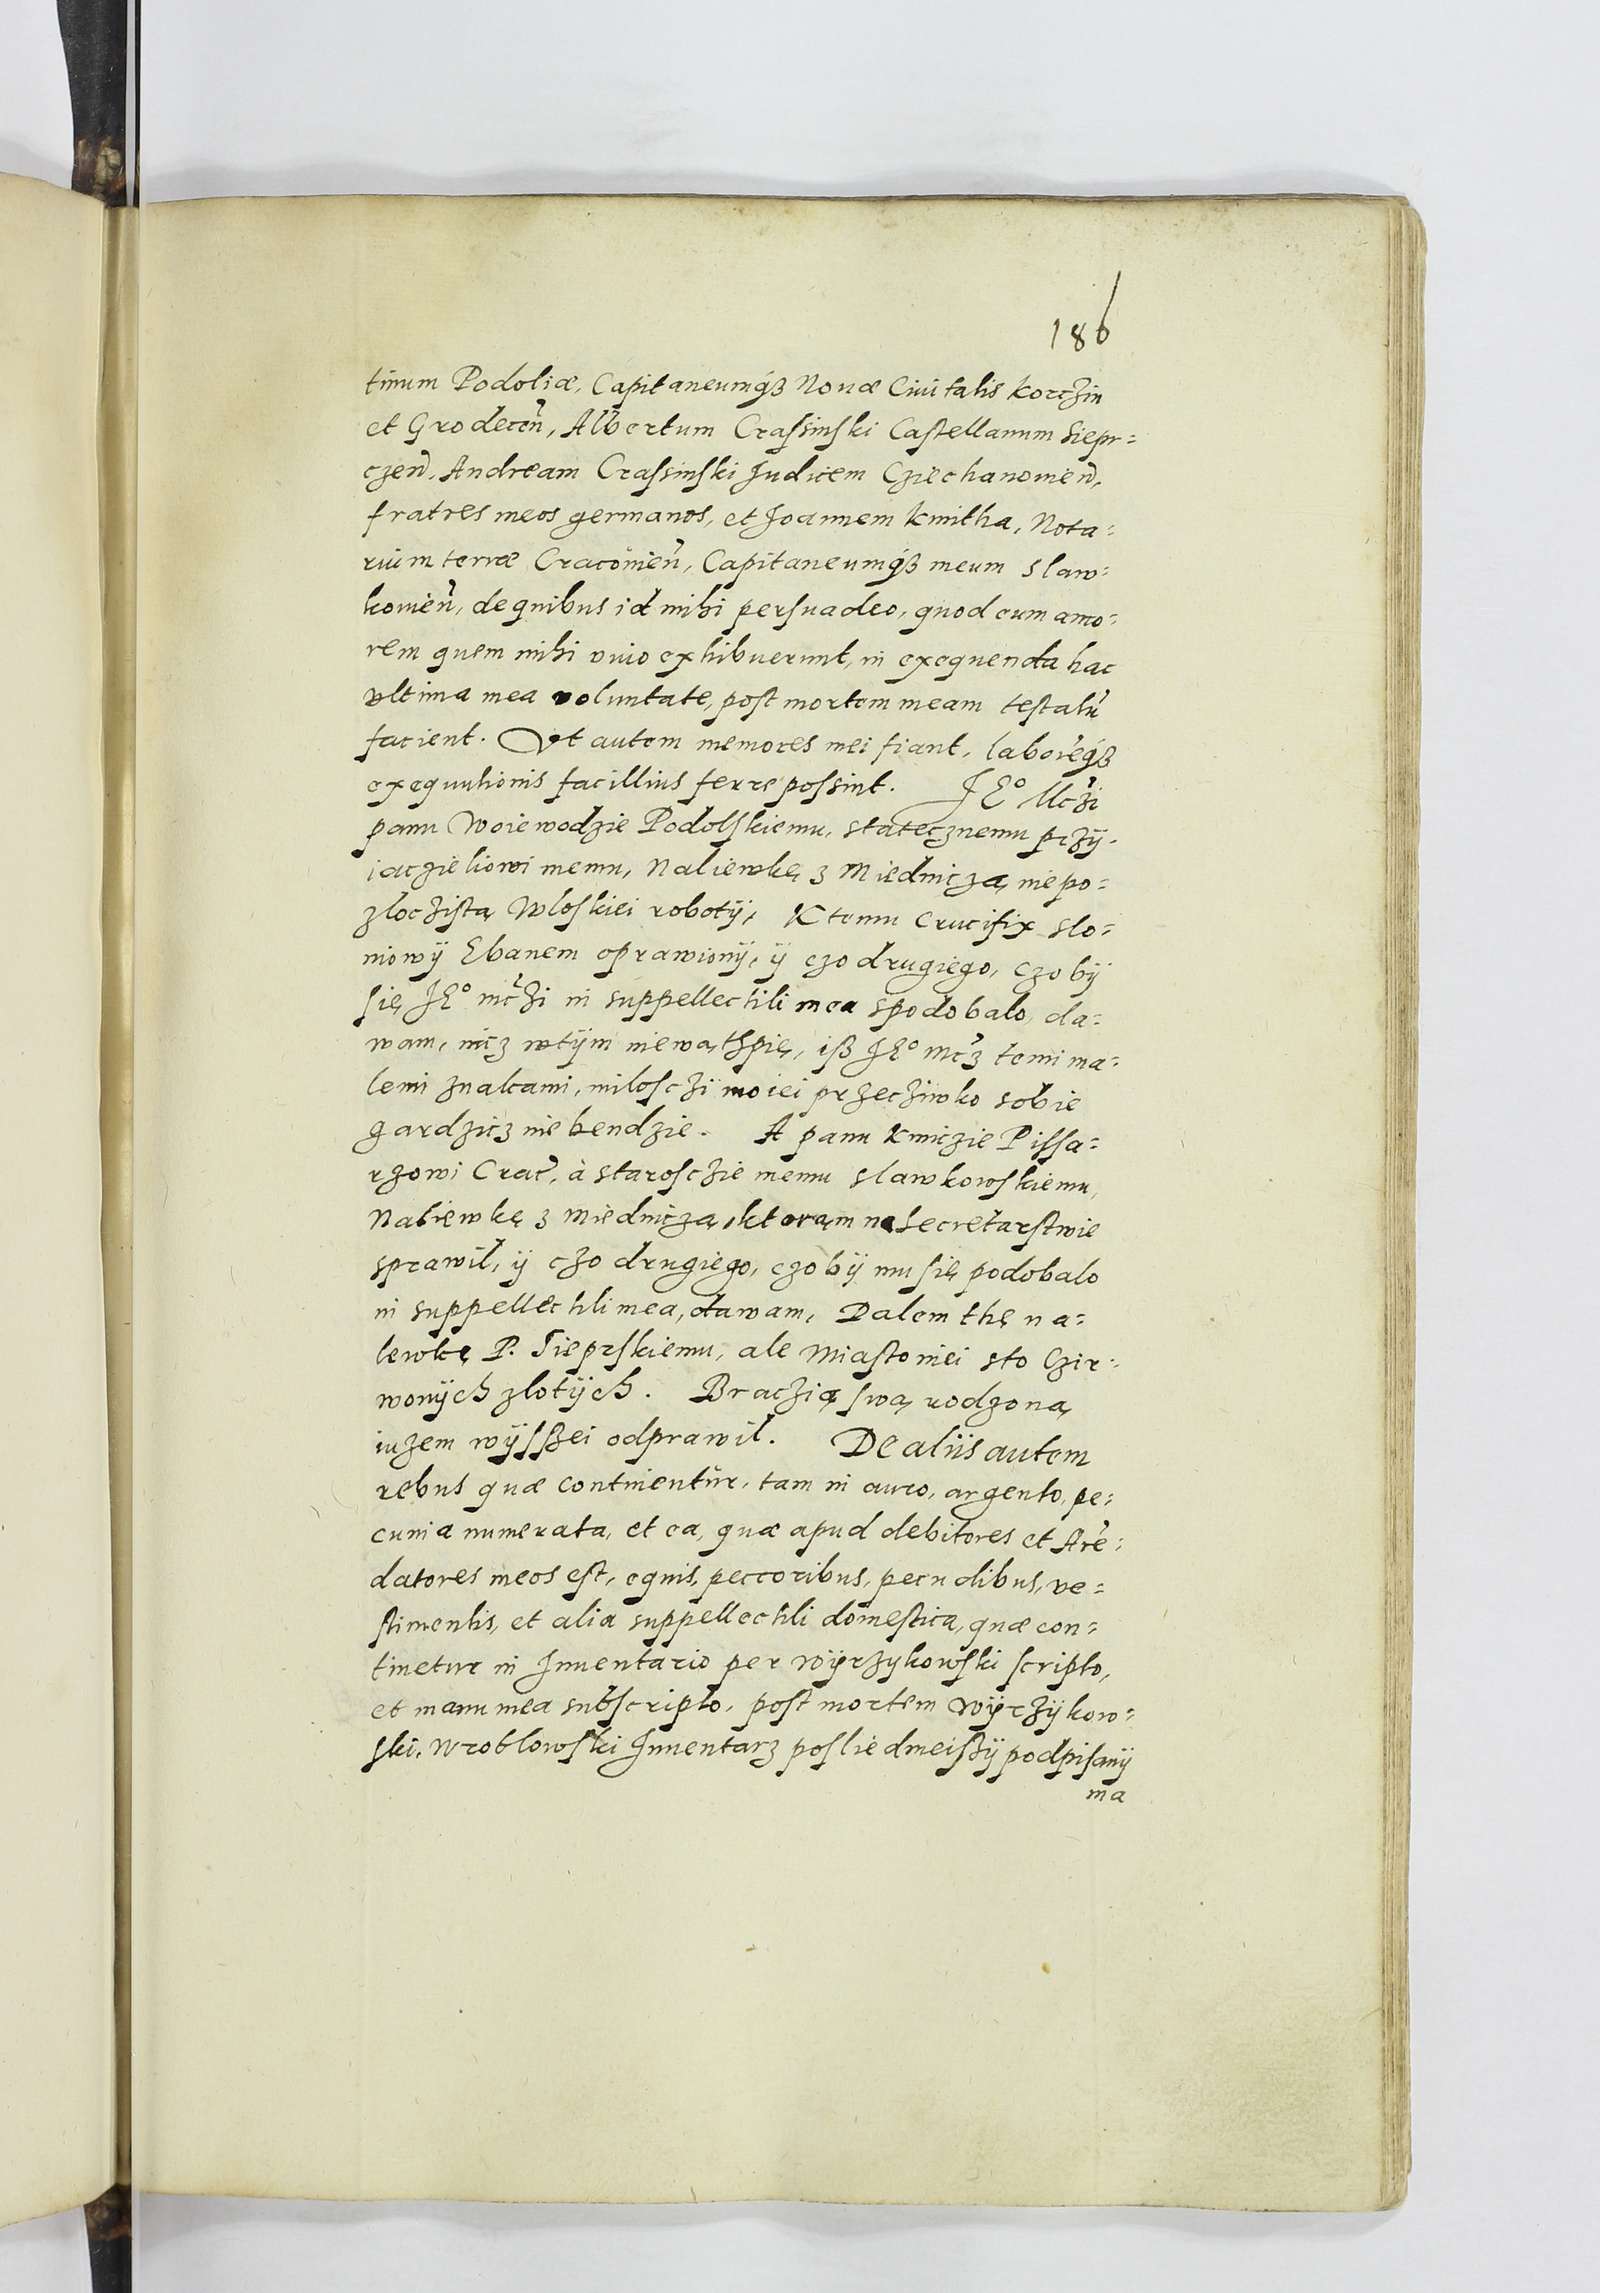 186
tinum Podoliæ, Capitaneumqꝫ Nouæ Ciuitatis Korczin
et Grodecen̄, Albertum Crassinski Castellanum Siepr=
czen̄, Andream Crassinski Judicem Cziechanowien̄,
fratres meos germanos, et Joannem Kmitha, Nota=
rium terræ Cracouien̄, Capitaneumqꝫ meum Slaw=
kouien̄, de quibus id mihi persuadeo, quod eum amo=
rem quem mihi viuo exhibuerunt, in exequenda hac
vltima mea voluntate, post mortem meam testatū
facient. Vt autem memores mei fiant, laboreqꝫ
exequutionis facillius ferre possint. JEº Mczi
panu Woiewodzie Podolskiemu, statecznemu przÿ=
iaczieliowi memu, Naliewkę z Miedniczą niepo=
zloczistą Wloskiei robotÿ, K temu Crucifix slo=
niowÿ Ebanem oprawionÿ, ÿ czo drugiego, czo bÿ
się JEº mczi in suppellectili mea spodobalo, da=
wam, nicz wtÿm niewąthpię, iß JEº mcz temi ma=
lemi znakami, milosczi moiei przecziwko sobie
gardzicz nie bendzie. A panu Kmiczie Pissa=
rzowi Crac̄, à starosczie memu slawkowskiemu,
Naliewkę z Miedniczą, ktorąm na Secretarstwie
sprawil, ÿ czo drugiego, czo bÿ mu się podobalo
in suppellectili mea, dawam, Dalem thę na=
lewkę P. Sieprskiemu, ale miasto niei sto Czir=
wonÿch zlotÿch. Braczią swą rodzoną
iuzem wÿsszei odprawil. De aliis autem
rebus quæ continentur, tam in auro, argento, pe=
cunia numerata, et ea, quæ apud debitores et Are=
datores meos est, equis, peccoribus, pecudibus, ve=
stimentis, et alia suppellectili domestica, quæ con=
tinetur in Inuentario per Wÿrzykowski scripto,
et manu mea subscripto, post mortem Wÿrzÿkow=
ski. Wroblowski Inuentarz posliedneißÿ podpisanÿ
ma